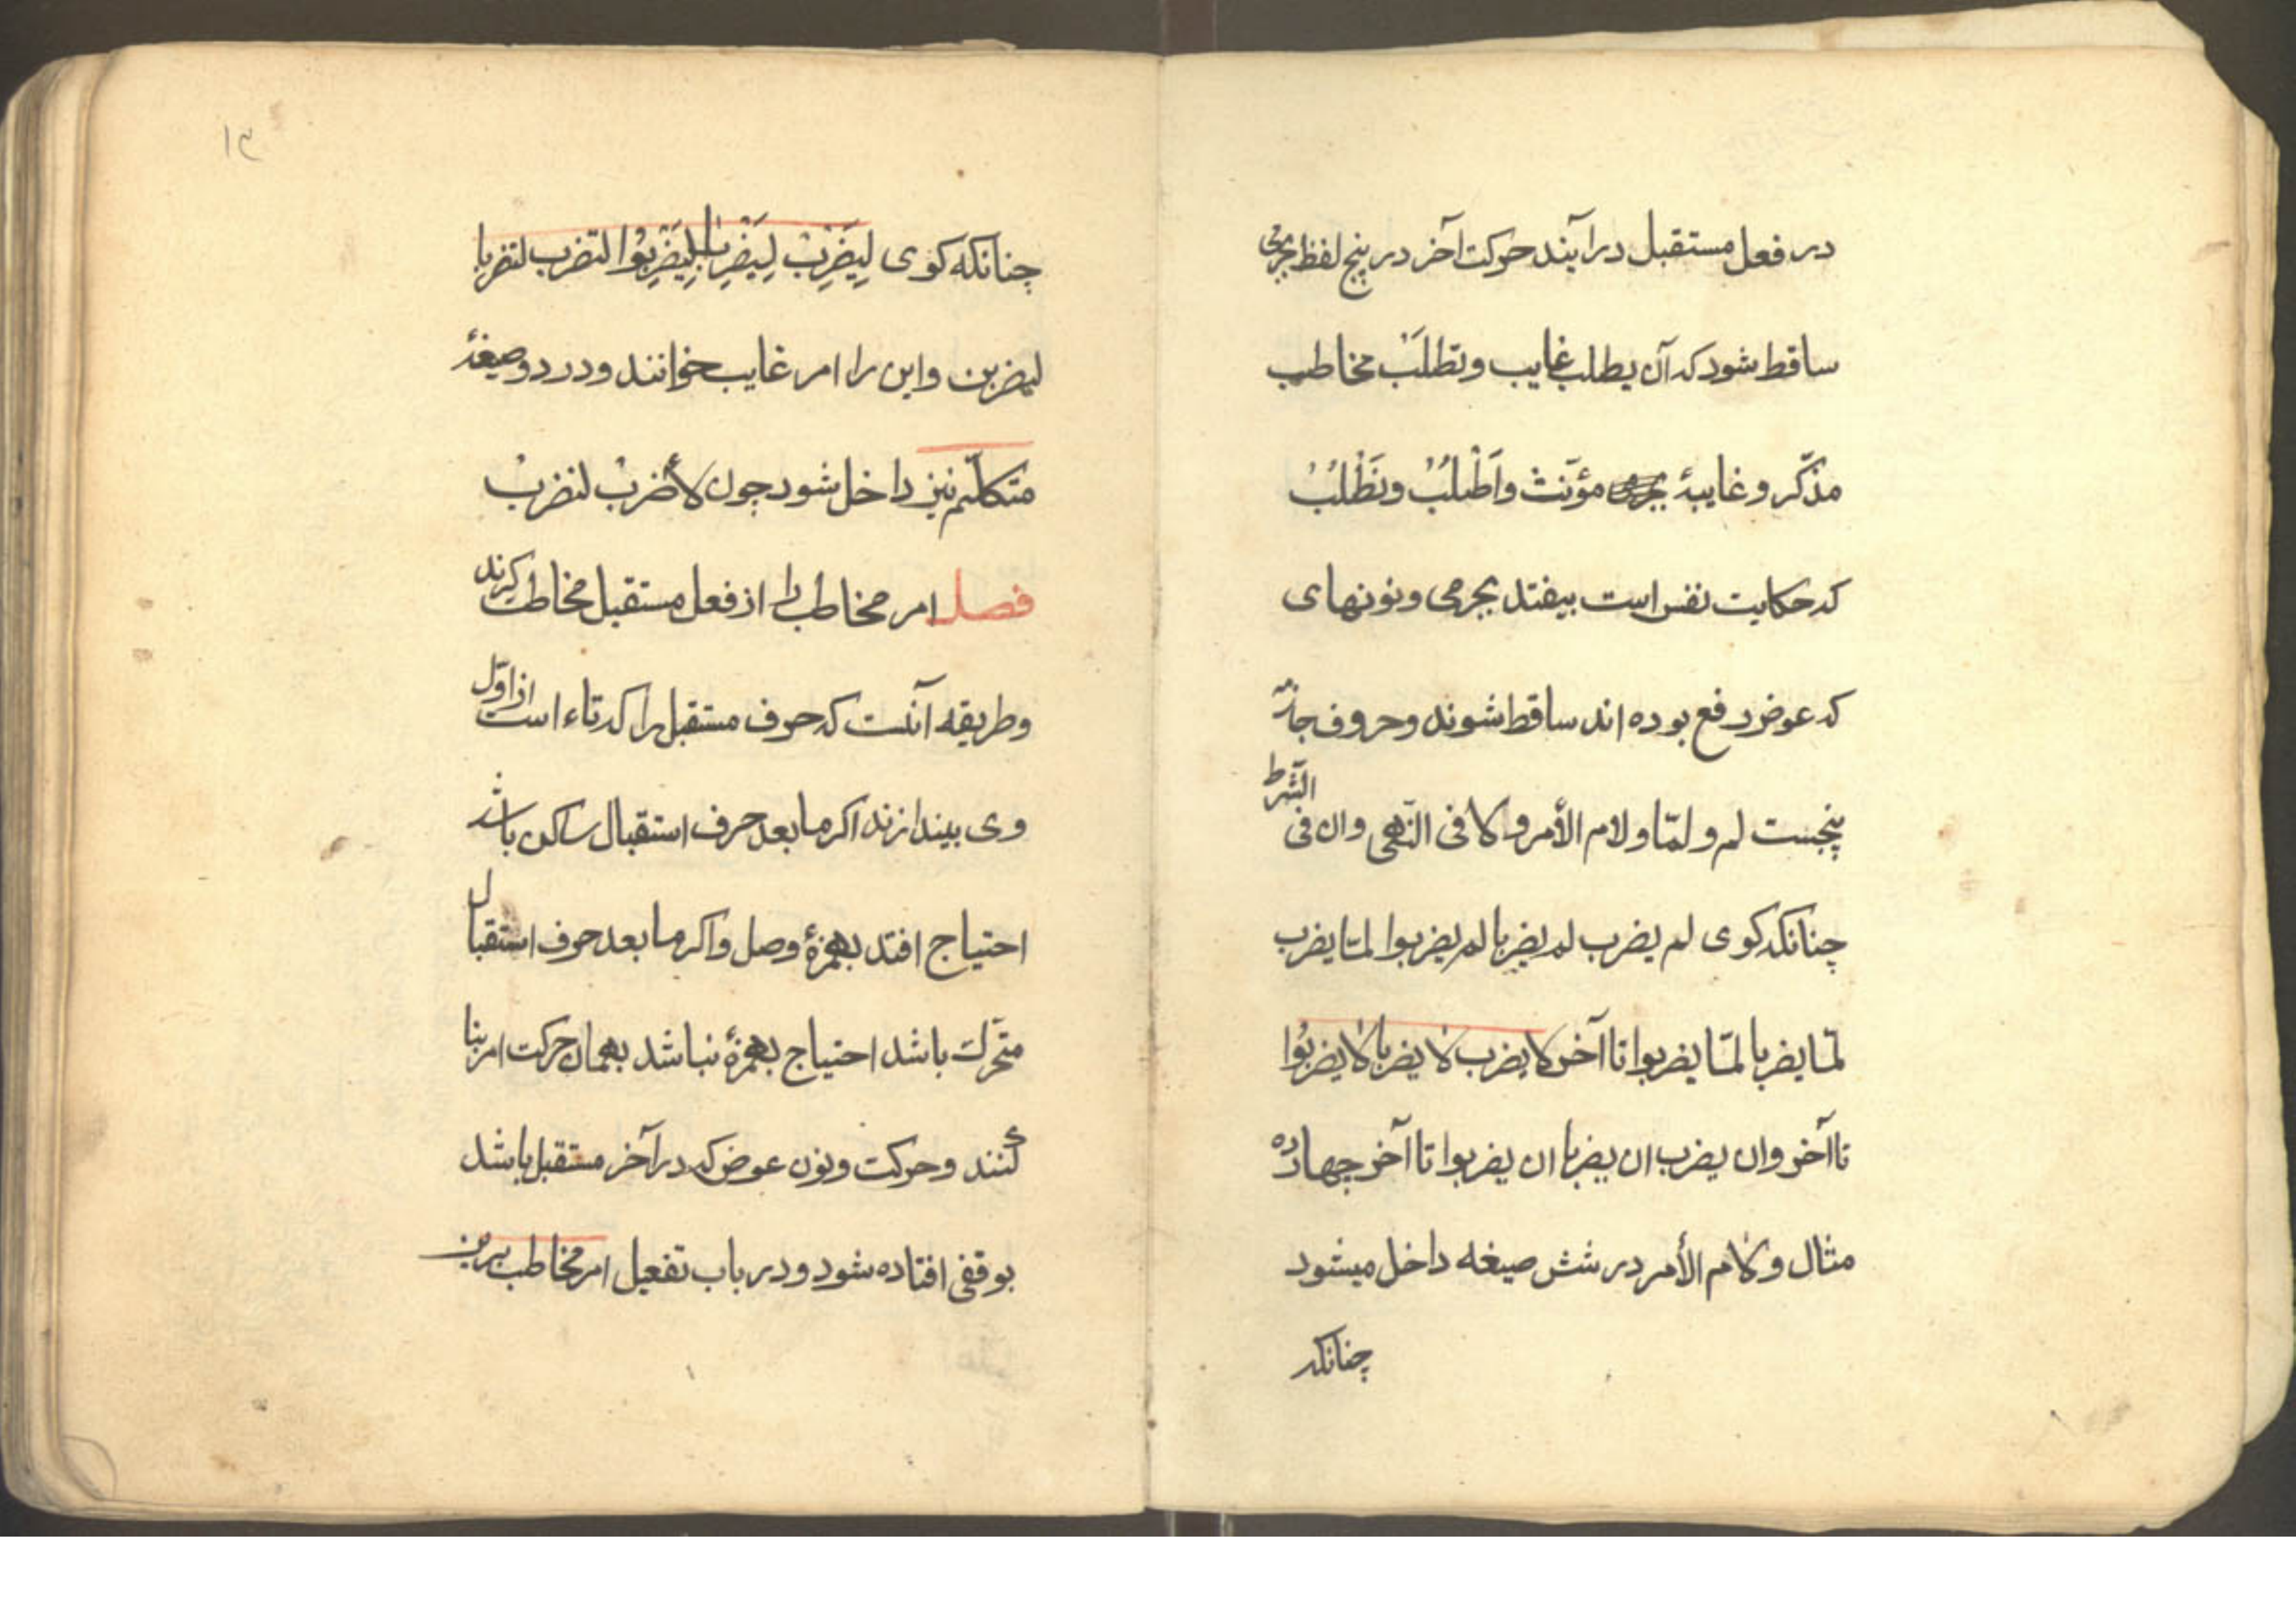 در فعل مستقبل درآیند حرکت آخر در پنج لفظ بجزمی
ساقط شود که آن یطلب غایب و تطلب مخاطب
مذکّر و غایبهٔ مؤنّث و اَطْلُبْ و نَطْلُبْ
که حکایت نفس است بیفتد بجزمی و نونهای
که عوض رفع بوده اند ساقط شوند و حروف جازمه
پنجست لم و لمّا و لام الأمر و لا فی النّهی و ان فی الشّرط
چنانکه کوی لم یضرب لم یضربا لم یضربوا لمّا یضرب
لمّا یضربا لمّا یضربوا تا آخر لا یضرب لا یضربا لا یضربُوا
تا آخر و ان یضرب ان یضربا ان یضربوا تا آخر چهارده
مثال و لام الأمر در شش صیغه داخل میشود
چنانکه
۱۳
چنانکه کوی لِیَضْرِبْ لِیَضْرِبا لِیَضْرِبُوا لتضرب لتضربا
لیضربن و این را امر غایب خوانند و در دو صیغهٔ
متکلّم نیز داخل شود چون لأضربْ لنضربْ
فصل امر مخاطب را از فعل مستقبل مخاطب کیرند
و طریقه آنست که حرف مستقبل را که تاء است از اوّل
وی بیندازند اکر ما بعد حرف استقبال ساکن باشد
احتیاج افتد بهمزهٔ وصل و اکر ما بعد حرف استقبال
متحّرک باشد احتیاج بهمزهٔ نباشد بهمان حرکت امر بنا
کنند و حرکت و نون عوض که در آخر مستقبل باشد
بوقفی افتاده شود و در باب تفعیل امر مخاطب برین